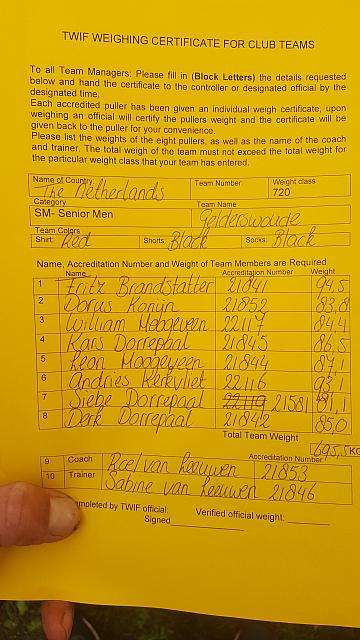 TWIF WEIGHING CERTIFICATE FOR CLUB TEAMS
To all Team Managers: Please fill in (Block Letters) the details requested
below and hand the certificate to the controller or designated official by the
designated time.
Each accredited puller has been given an individual weigh certificate, upon
weighing an official will certify the pullers weight and the certificate will be
given back to the puller for your convenience.
Please list the weights of the eight pullers, as well as the name of the coach
and trainer. The total weigh of the team must not exceed the total weight for
the particular weight class that your team has entered.
Name of Country Team Number Weight class
The Netherlands 720
Category Team Name
SM- Senior Men Gelderswoude
Team Colors
Shirt: Red Shorts: Black Socks: Black
Name, Accreditation Number and Weight of Team Members are Required
Name Accreditation Number Weight
1 Fritz Brandstatter 21841 94,5
2 Dorus Konijn 21852 83,8
3 William Hoogeveen 22117 84,4
4 Kars Dorrepaal 21845 86,5
5 Leon Hoogeveen 21844 87,1
6 Andries Kerkvliet 22116 93,1
7 Siebe Dorrepaal 22119 21581 81,1
8 Derk Dorrepaal 21842 85,0
Total Team Weight
695,5 KG
Accreditation Number
9 Coach Roel van Leeuwen 21853
10 Trainer Sabine van Leeuwen 21846
completed by TWIF official: Verified official weight:
Signed